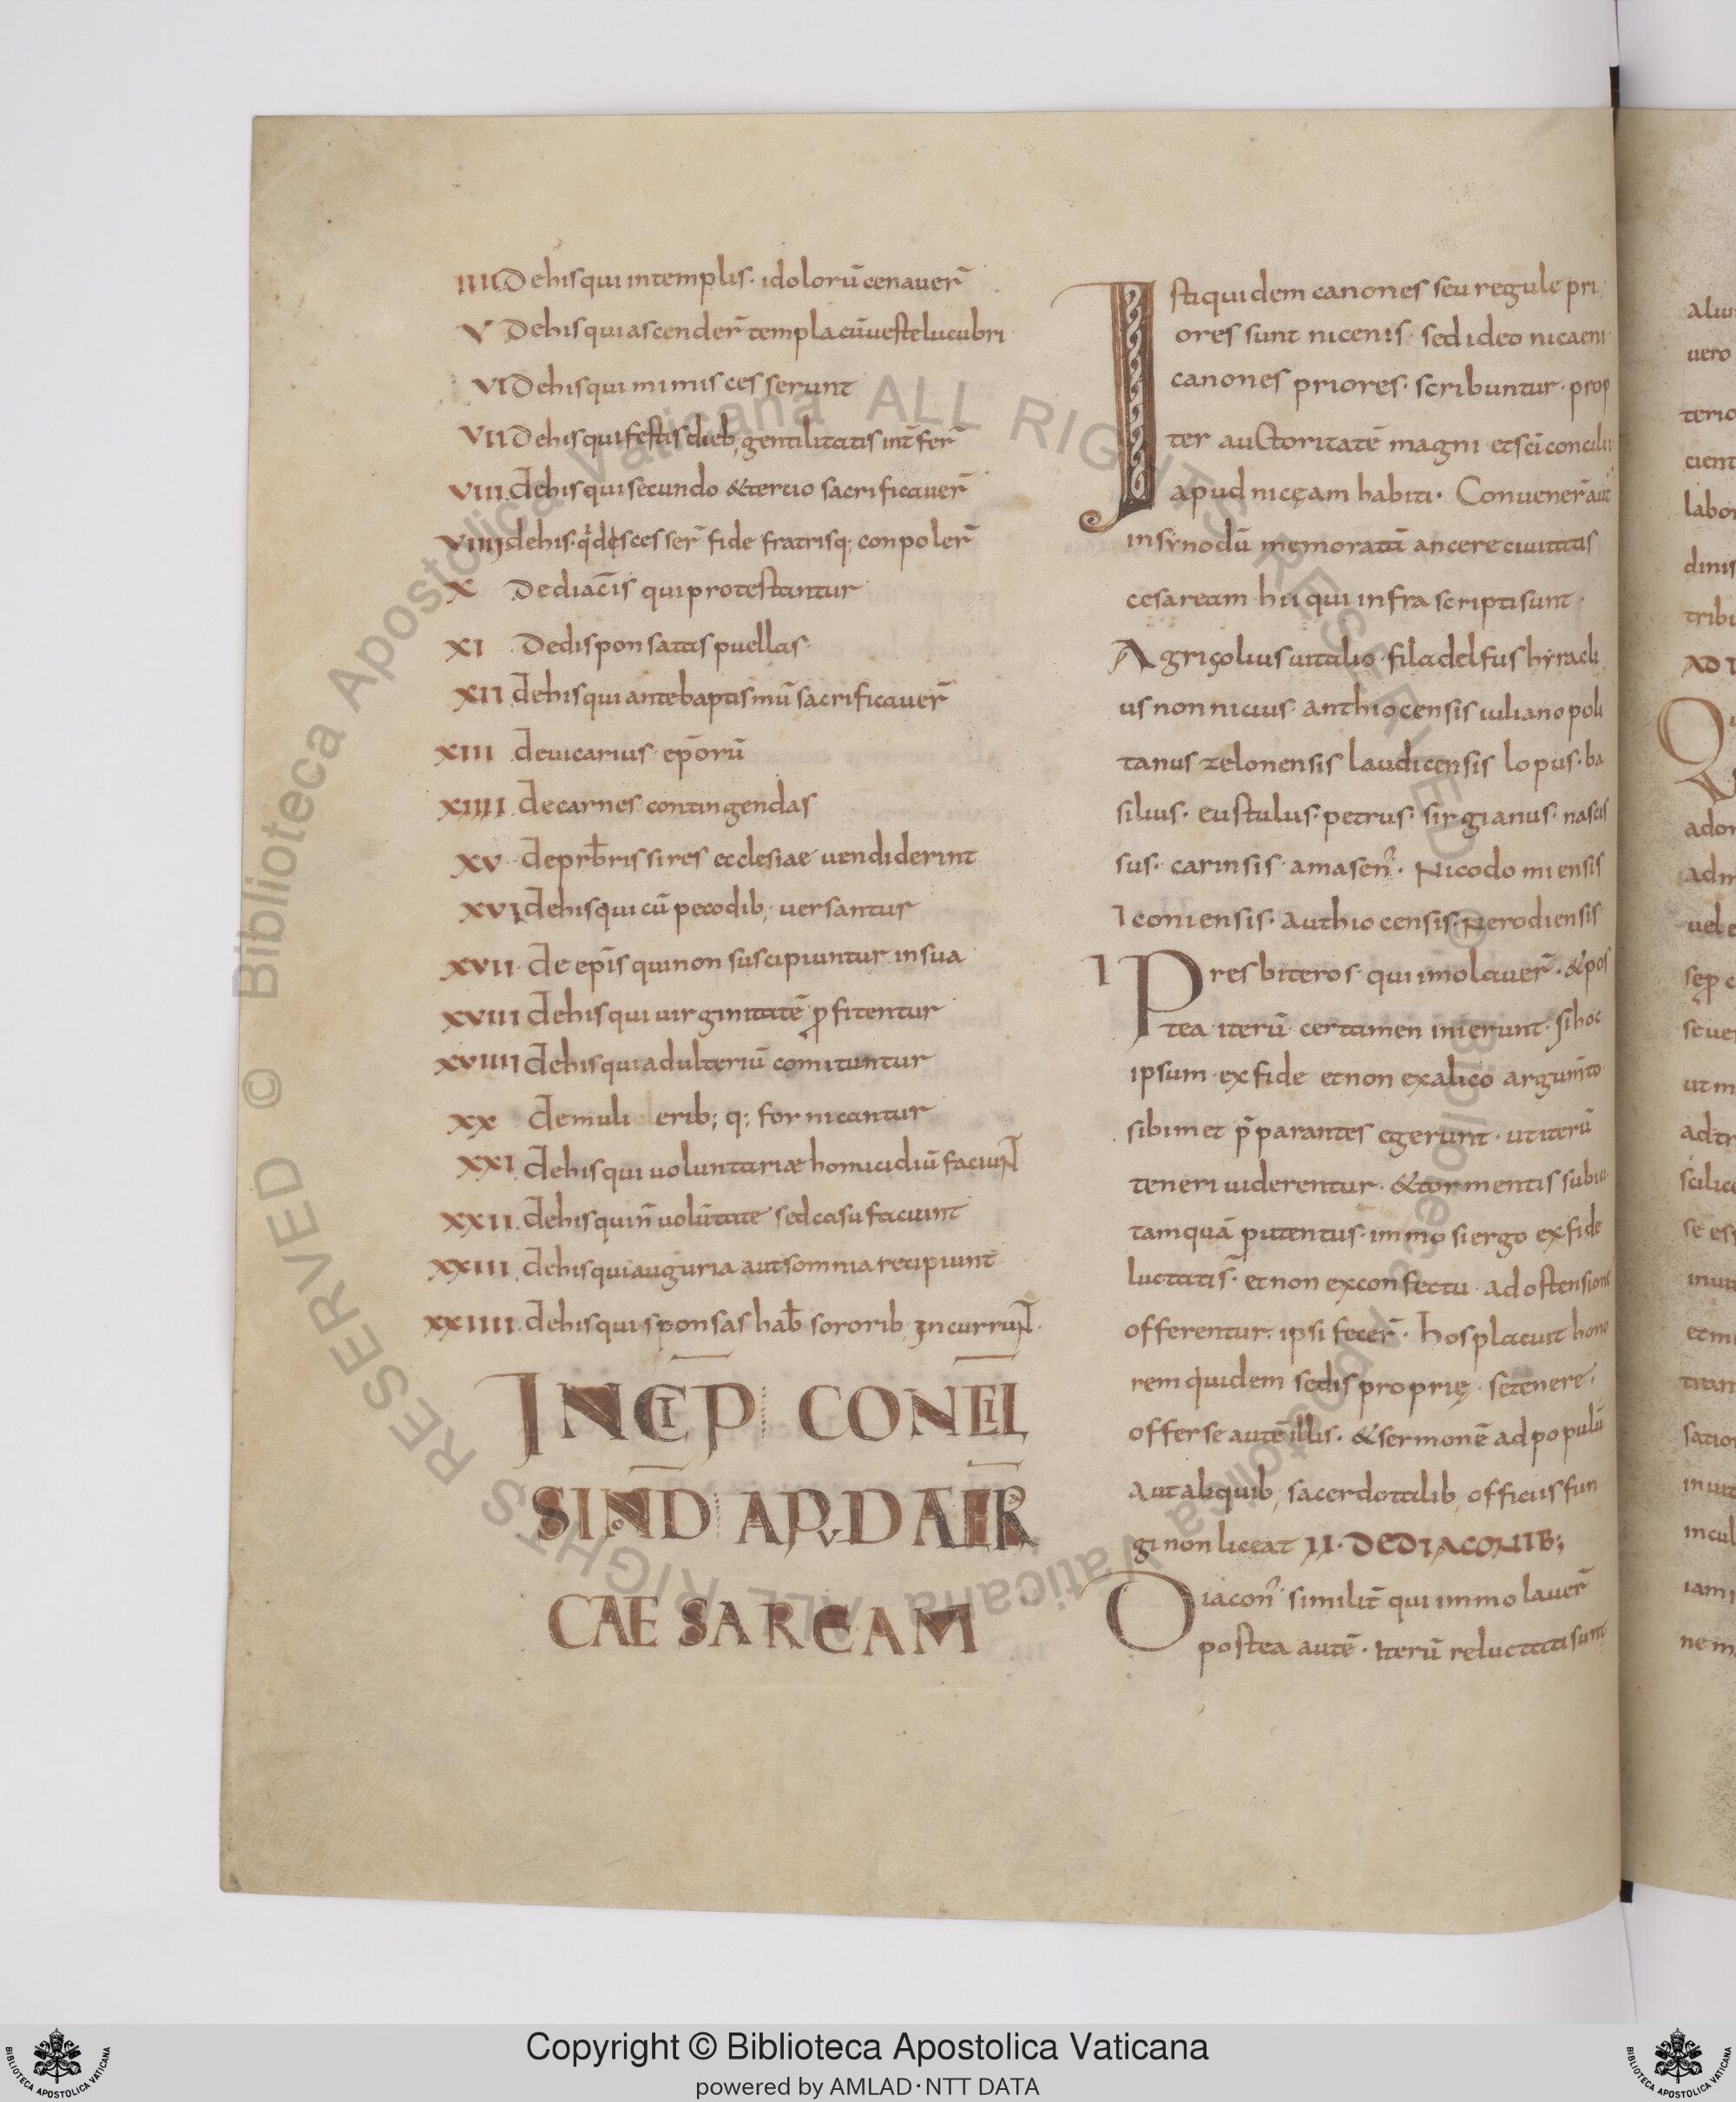 IIII Dehis qui intemplis · idolorū cenauer̄
V Dehis qui ascender̄ templa cū ueste lucubri
VI Dehis qui mimis cesserunt
VII Dehis qui festis dieb; gentilitatis int̄fer̄
VIII dehis qui secundo & tercio sacrificauer̄
VIIII dehis · fide fratrisq; conpoler̄
X Dediac̄is qui protestantur
XI Dedisponsatas puellas ·
XII dehis qui ante baptismū sacrificauer̄
XIII deuicarius ep̄orū
XIIII decarnes contingendas
XV deprb̄ris si res ecclesiae uendiderint
XVI dehis qui cū pecodib; uersantur
XVII de ep̄is qui non suscipiuntur in sua
XVIII dehis qui uirginitatē ꝓfitentur
XVIIII dehis qui adulteriū comituntur
XX demulierib; q; fornicantur
XXI dehis qui uoluntariæ homicidiū faciun̄
XXII dehis qui n̄ uolūtate sed casu faciunt
XXIII dehis qui auguria aut somnia recipiunt
XXIIII dehis qui sponsas hab̄ sororib; incurrun̄ ·
INCIP CONCIL
SINOD APVD
CAESAREAM
Isti quidem canones seu regule pri
ores sunt nicenis · sed ideo nicaeni
canones priores · scribuntur · prop
ter auctoritatē magni et sc̄i concilii
apud nicęam habiti · Conuener̄ aut̄
in synodū memoratā ancere ciuitatis
cesaream · hii qui infra scripti sunt ·
Agriçolius uitalio · filadelfus hyracli
us non nicius · anthiocensis iulianopoli
tanus zelonensis laudicensis lopus · ba
silius · eustulus · petrus · sirgianus · narcis
sus · carinsis · amasen̄ · Nicodomiensis
Iconiensis · authiocensis · Nerodiensis
I Presbiteros qui imolauer̄ · & pos
tea iterū certamen inierunt · si hoc
ipsum · ex fide et non ex alico argum̄to
sibimet p̄parantes egerunt · ut iterū
teneri uiderentur · & tormentis subiu
tamquā putentus · immo si ergo ex fide
luctatis · et non ex confectu · ad ostensionē
offerentur · ipsi fecer̄ · hos placuit hono
rem quidem sedis proprię · se tenere ·
offerse autē illis · & sermonē ad populū
aut aliquib; sacerdotalib; officiis fun
gi non liceat II · DEDIACONIB;
Diacon̄ similit̄ qui immolauer̄
postea autē · iterū reluctati sunt
aliu
uero
terio
cient
labor
dinis
tribu
AD
ador
adm
uel e
utm
ad tr
scilice
se es
inui
etm
tran
satio
inuit
incul
iam
ne m
Copyright © Biblioteca Apostolica Vaticana
powered by AMLAD·NTT DATA
BIBLIOTECA APOSTOLICA VATICANA
BIBLIOTECA APOSTOLICA VATICANA
© Biblioteca Apostolica Vaticana ALL RIGHTS RESERVED
© Biblioteca Apostolica Vaticana ALL RIGHTS RESERVED